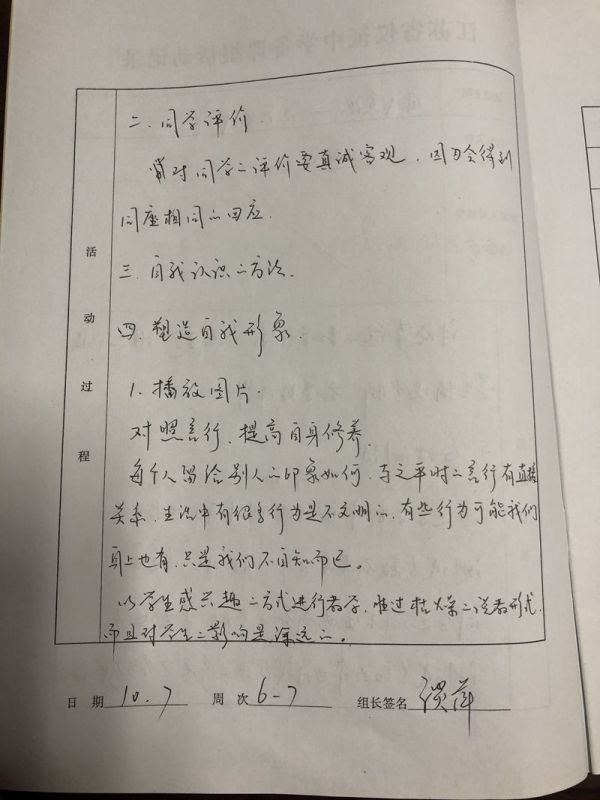 活动过程
二.同学评价
对同学的评价要真诚客观,因为会得到
同座相同的回应.
三.自我认识的方法.
四.塑造自我形象.
1.播放图片.
对照言行,提高自身修养.
每个人留给别人的印象如何,与之平时的言行有直接
关系,生活中有很多行为是不文明的,有些行为可能我们
身上也有,只是我们不自知而已.
以学生感兴趣的方式进行教学,胜过枯燥的说教形式,
而且对学生的影响是深远的。
日期 10.7 周次 6-7 组长签名